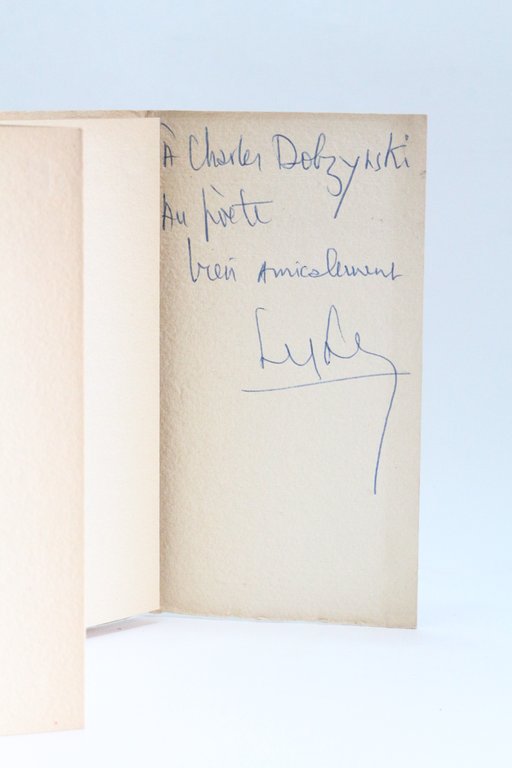 À Charles Dobzynski
Au poète
bien amicalement